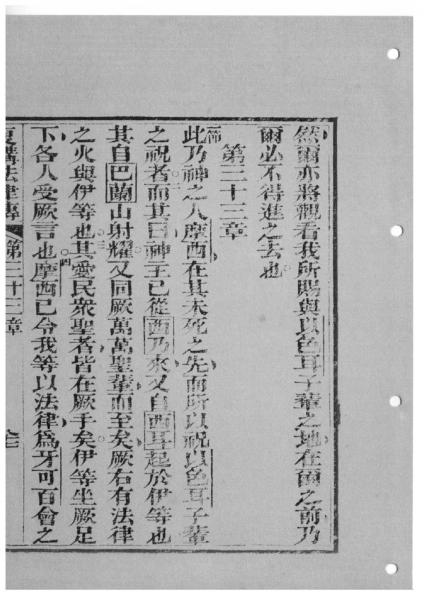 然爾亦將觀看我所賜與以色耳子輩之地在爾之前乃
爾必不得進之去也
第三十三章
一節
此乃神之人摩西在其未死之先而所以祝以色耳子輩
之祝者二而其曰神主已從西乃來又自西耳起於伊等也
其自巴蘭山射耀又同厥萬萬聖輩而至矣厥右有法律
之火與伊等也三其愛民衆聖者皆在厥手矣伊等坐厥足
下各人受厥言也四摩西已令我等以法律爲牙可百會之
復講法律傳 第三十三章